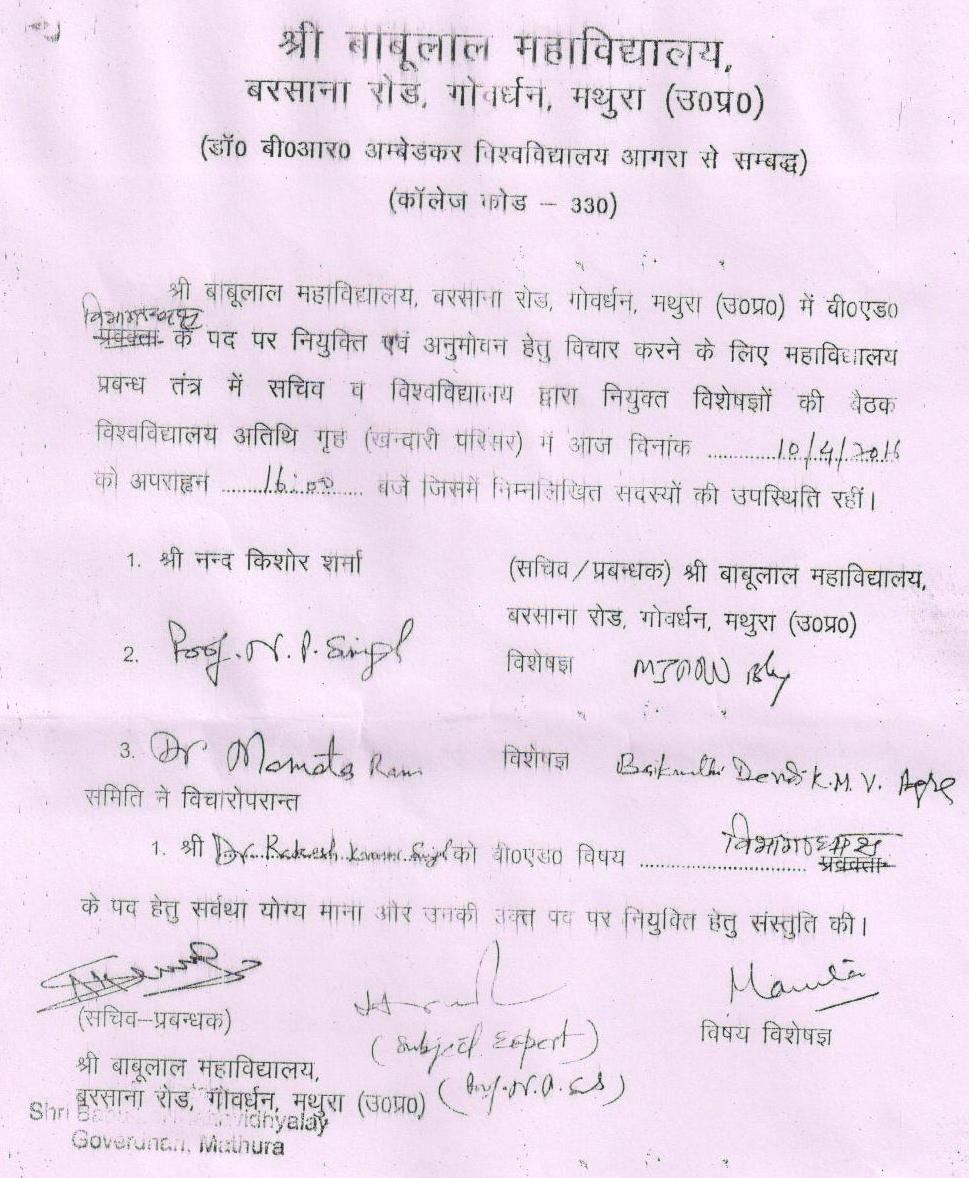 श्री बाबूलाल महाविद्यालय,
बरसाना रोड, गोवर्धन, मथुरा (उ0प्र0)
(डॉ0 बी0आर0 अम्बेडकर विश्वविद्यालय आगरा से सम्बद्ध)
(कॉलेज कोड – 330)
श्री बाबूलाल महाविद्यालय, बरसाना रोड, गोवर्धन, मथुरा (उ0प्र0) में बी0एड0
विभागाध्यक्ष
प्रवक्ता के पद पर नियुक्ति एवं अनुमोवन हेतु विचार करने के लिए महाविद्यालय
प्रबन्ध तंत्र में सचिव व विश्वविद्यालय द्वारा नियुक्त विशेषज्ञों की बैठक
विश्वविद्यालय अतिथि गृह (खन्दारी परिसर) में आज दिनांक ..............10/4/2016
को अपराह्न ......16:00...... बजे जिसमें निम्नलिखित सदस्यों की उपस्थिति रहीं।
1. श्री नन्द किशोर शर्मा (सचिव/प्रबन्धक) श्री बाबूलाल महाविद्यालय,
बरसाना रोड, गोवर्धन, मथुरा (उ0प्र0)
2. Prof. N. P. Singh विशेषज्ञ
3. Dr Mamata Rani विशेषज्ञ Baikunthi Devi K.M.V. Agra
समिति ने विचारोपरान्त
1. श्री Dr. Rakesh Kumar Singh को बी0एड0 विषय ........................ विभागाध्यक्ष प्रवक्ता
के पद हेतु सर्वथा योग्य माना और उनकी उक्त पद पर नियुक्ति हेतु संस्तुति की।
Mamta
(सचिव–प्रबन्धक) (Subject Expert) विषय विशेषज्ञ
श्री बाबूलाल महाविद्यालय,
बरसाना रोड, गोवर्धन, मथुरा (उ0प्र0)
Shri
Goverdhan, Mathura